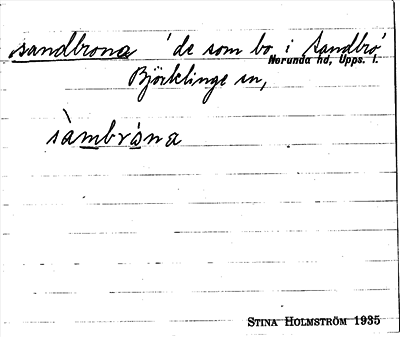 sandbrona 'de som bo i Sandbro'
Norunda hd, Upps. l.
Björklinge sn,
sàmbròna
STINA HOLMSTRÖM 1935